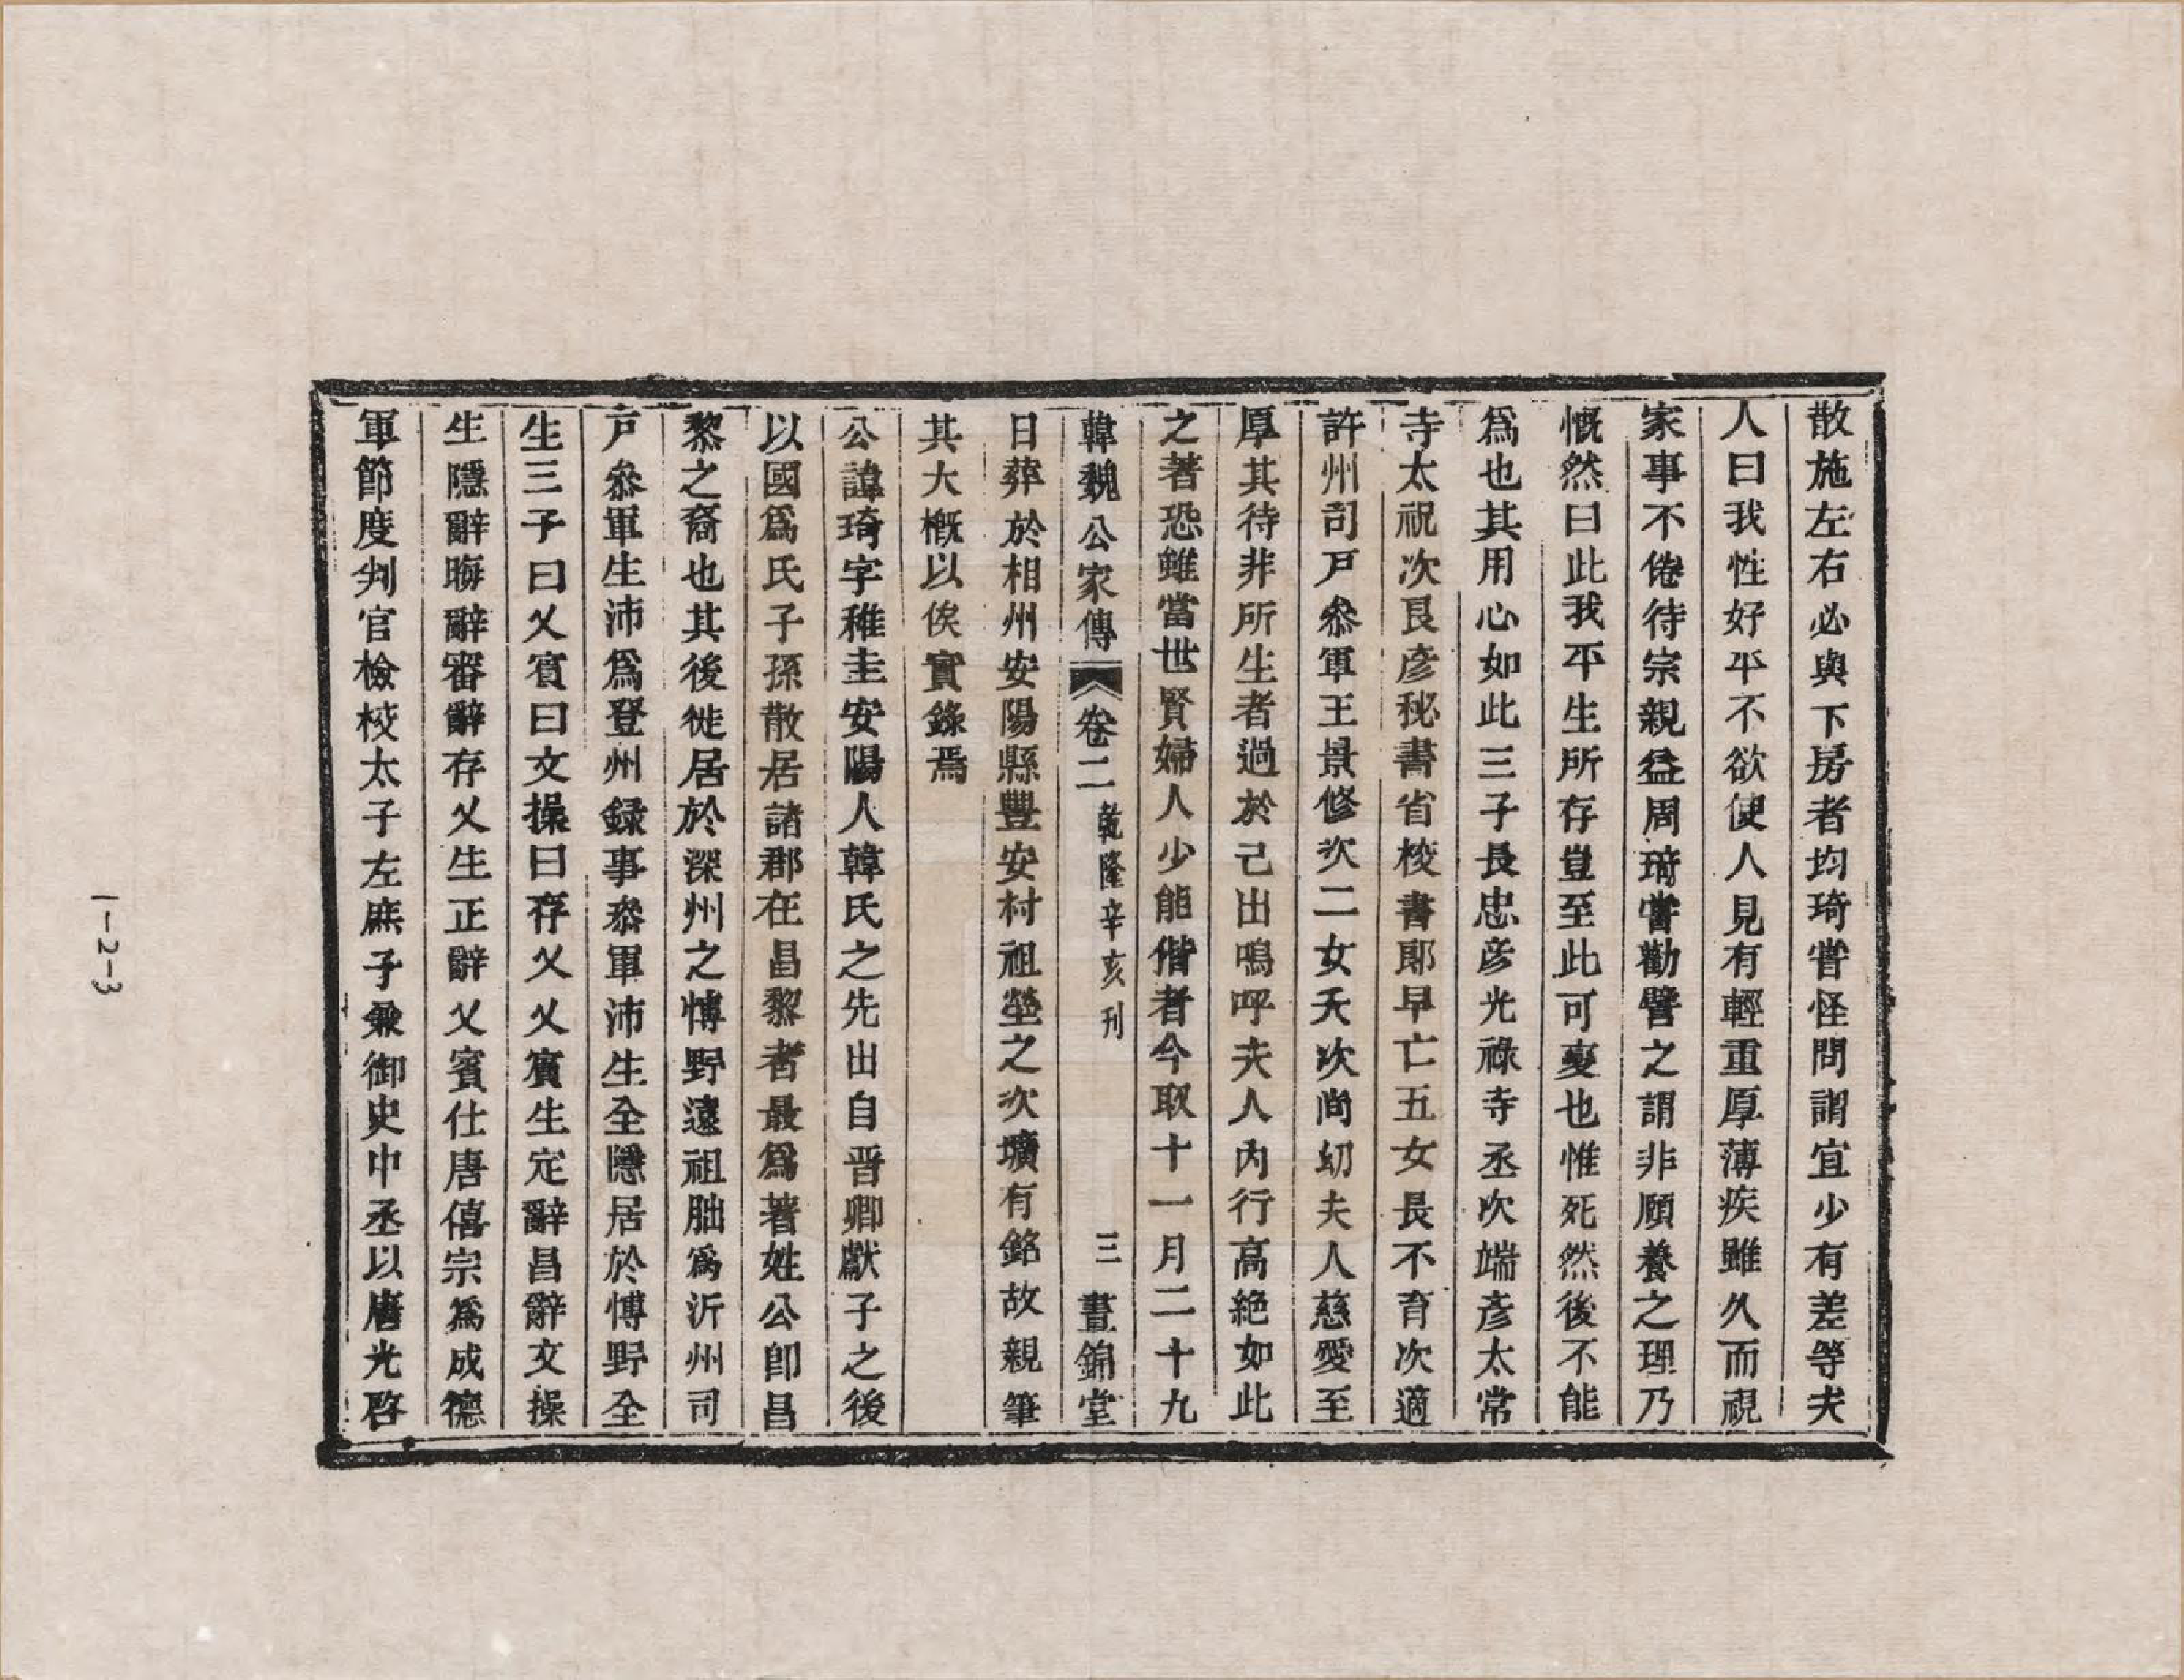 散施左右必與下房者均琦嘗怪問謂宜少有差等夫
人曰我性好平不欲使人見有輕重厚薄疾雖久而視
家事不倦待宗親益周琦嘗勸譬之謂非頤養之理乃
慨然曰此我平生所存豈至此可變也惟死然後不能
爲也其用心如此三子長忠彦光祿寺丞次端彥太常
寺太祝次良彦秘書省校書郎早亡五女長不育次適
許州司戸叅軍王景修次二女夭次尚幼夫人慈愛至
厚其待非所生者過於己出嗚呼夫人內行高絶如此
之著恐雖當世賢婦人少能偕者今取十一月二十九
韓魏公家傳 卷二 乾隆辛亥刊 三 晝錦堂
日葬於相州安陽縣豐安村祖塋之次壙有銘故親筆
其大槪以俟實錄焉
公諱琦字稚圭安陽人韓氏之先出自晋卿獻子之後
以國爲氏子孫散居諸郡在昌黎者最爲著姓公卽昌
黎之裔也其後徙居於深州之博野遠祖朏爲沂州司
戸叅軍生沛爲登州録事叅軍沛生全隱居於博野全
生三子曰乂賓曰文操曰存乂乂賓生定辭昌辭文操
生隱辭晦辭審辭存乂生正辭乂賓仕唐僖宗爲成德
軍節度判官檢校太子左庶子兼御史中丞以唐光啓
1-2-3